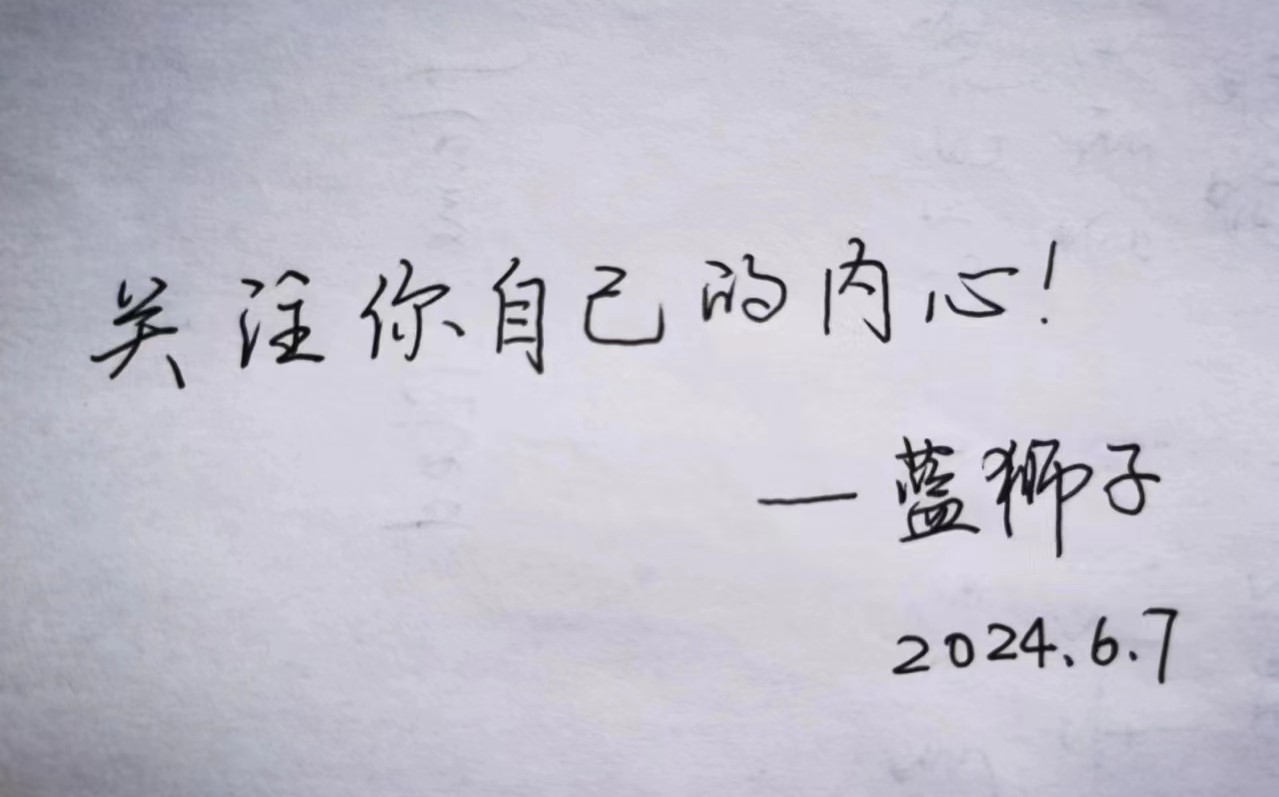 关注你自己的内心!
—蓝狮子
2024.6.7